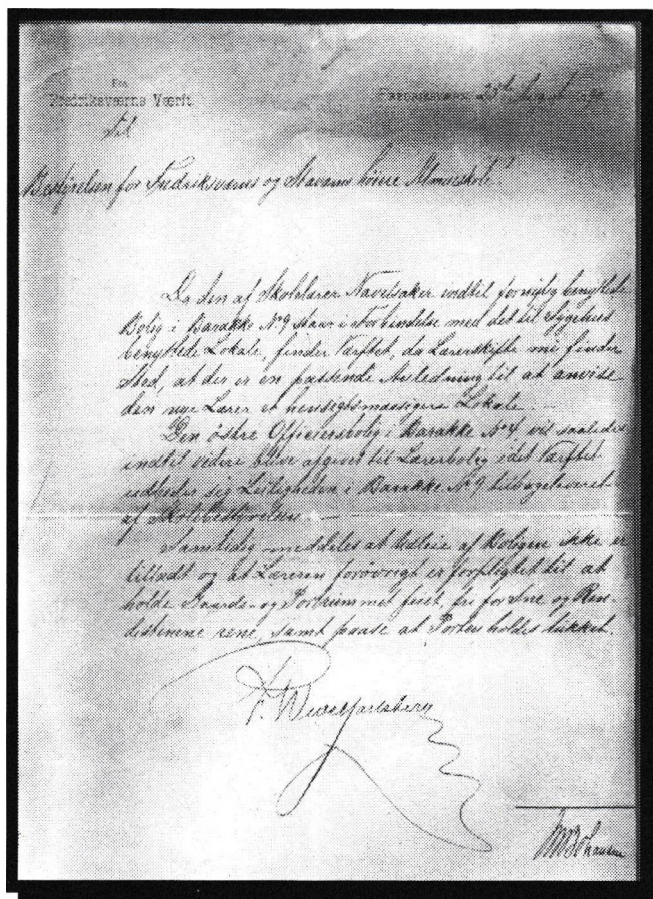 Fra
Fredriksværns Værft
Fredriksværn 25de August
Til
Bestyrelsen for Fredriksværns og Staværns höiere Almueskole.
Da den af Skolelærer Navelsaker indtil fornylig benyttede
Bolig i Barakke No 9 staar i Forbindelse med det til Sygehus
benyttede Lokale, finder Værftet, da Lærerskifte nu finder
Sted, at der er en passende Anledning til at anvise
den nye Lærer et hensigtsmæssigere Lokale. —
Den östre Officiersbolig i Barakke No 4 vil saaledes
indtil videre blive afgivet til Lærerbolig idet Værftet
udbeder sig Leiligheden i Barakke No 9 tilbageleveret
af Skolebestyrelsen. —
Samtidig meddeles at af Boligen ikke er
tilladt og at Læreren forøvrigt er forpligtet til at
holde Gaards- og Portrummet feiet, fri for Sne og Ren-
destenene rene, samt paase at Porten holdes lukket.
F. Wedel Jarlsberg
Johansen